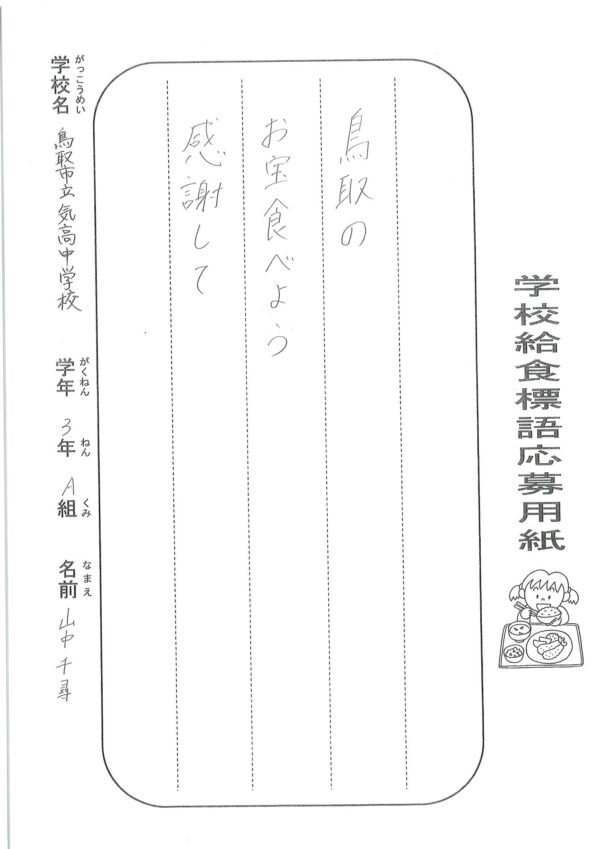 学校給食標語応募用紙
鳥取の
お宝食べよう
感謝して
学校名 鳥取市立気高中学校 学年 3年 A組 名前 山中千尋
がっこうめい がくねん ねん くみ なまえ